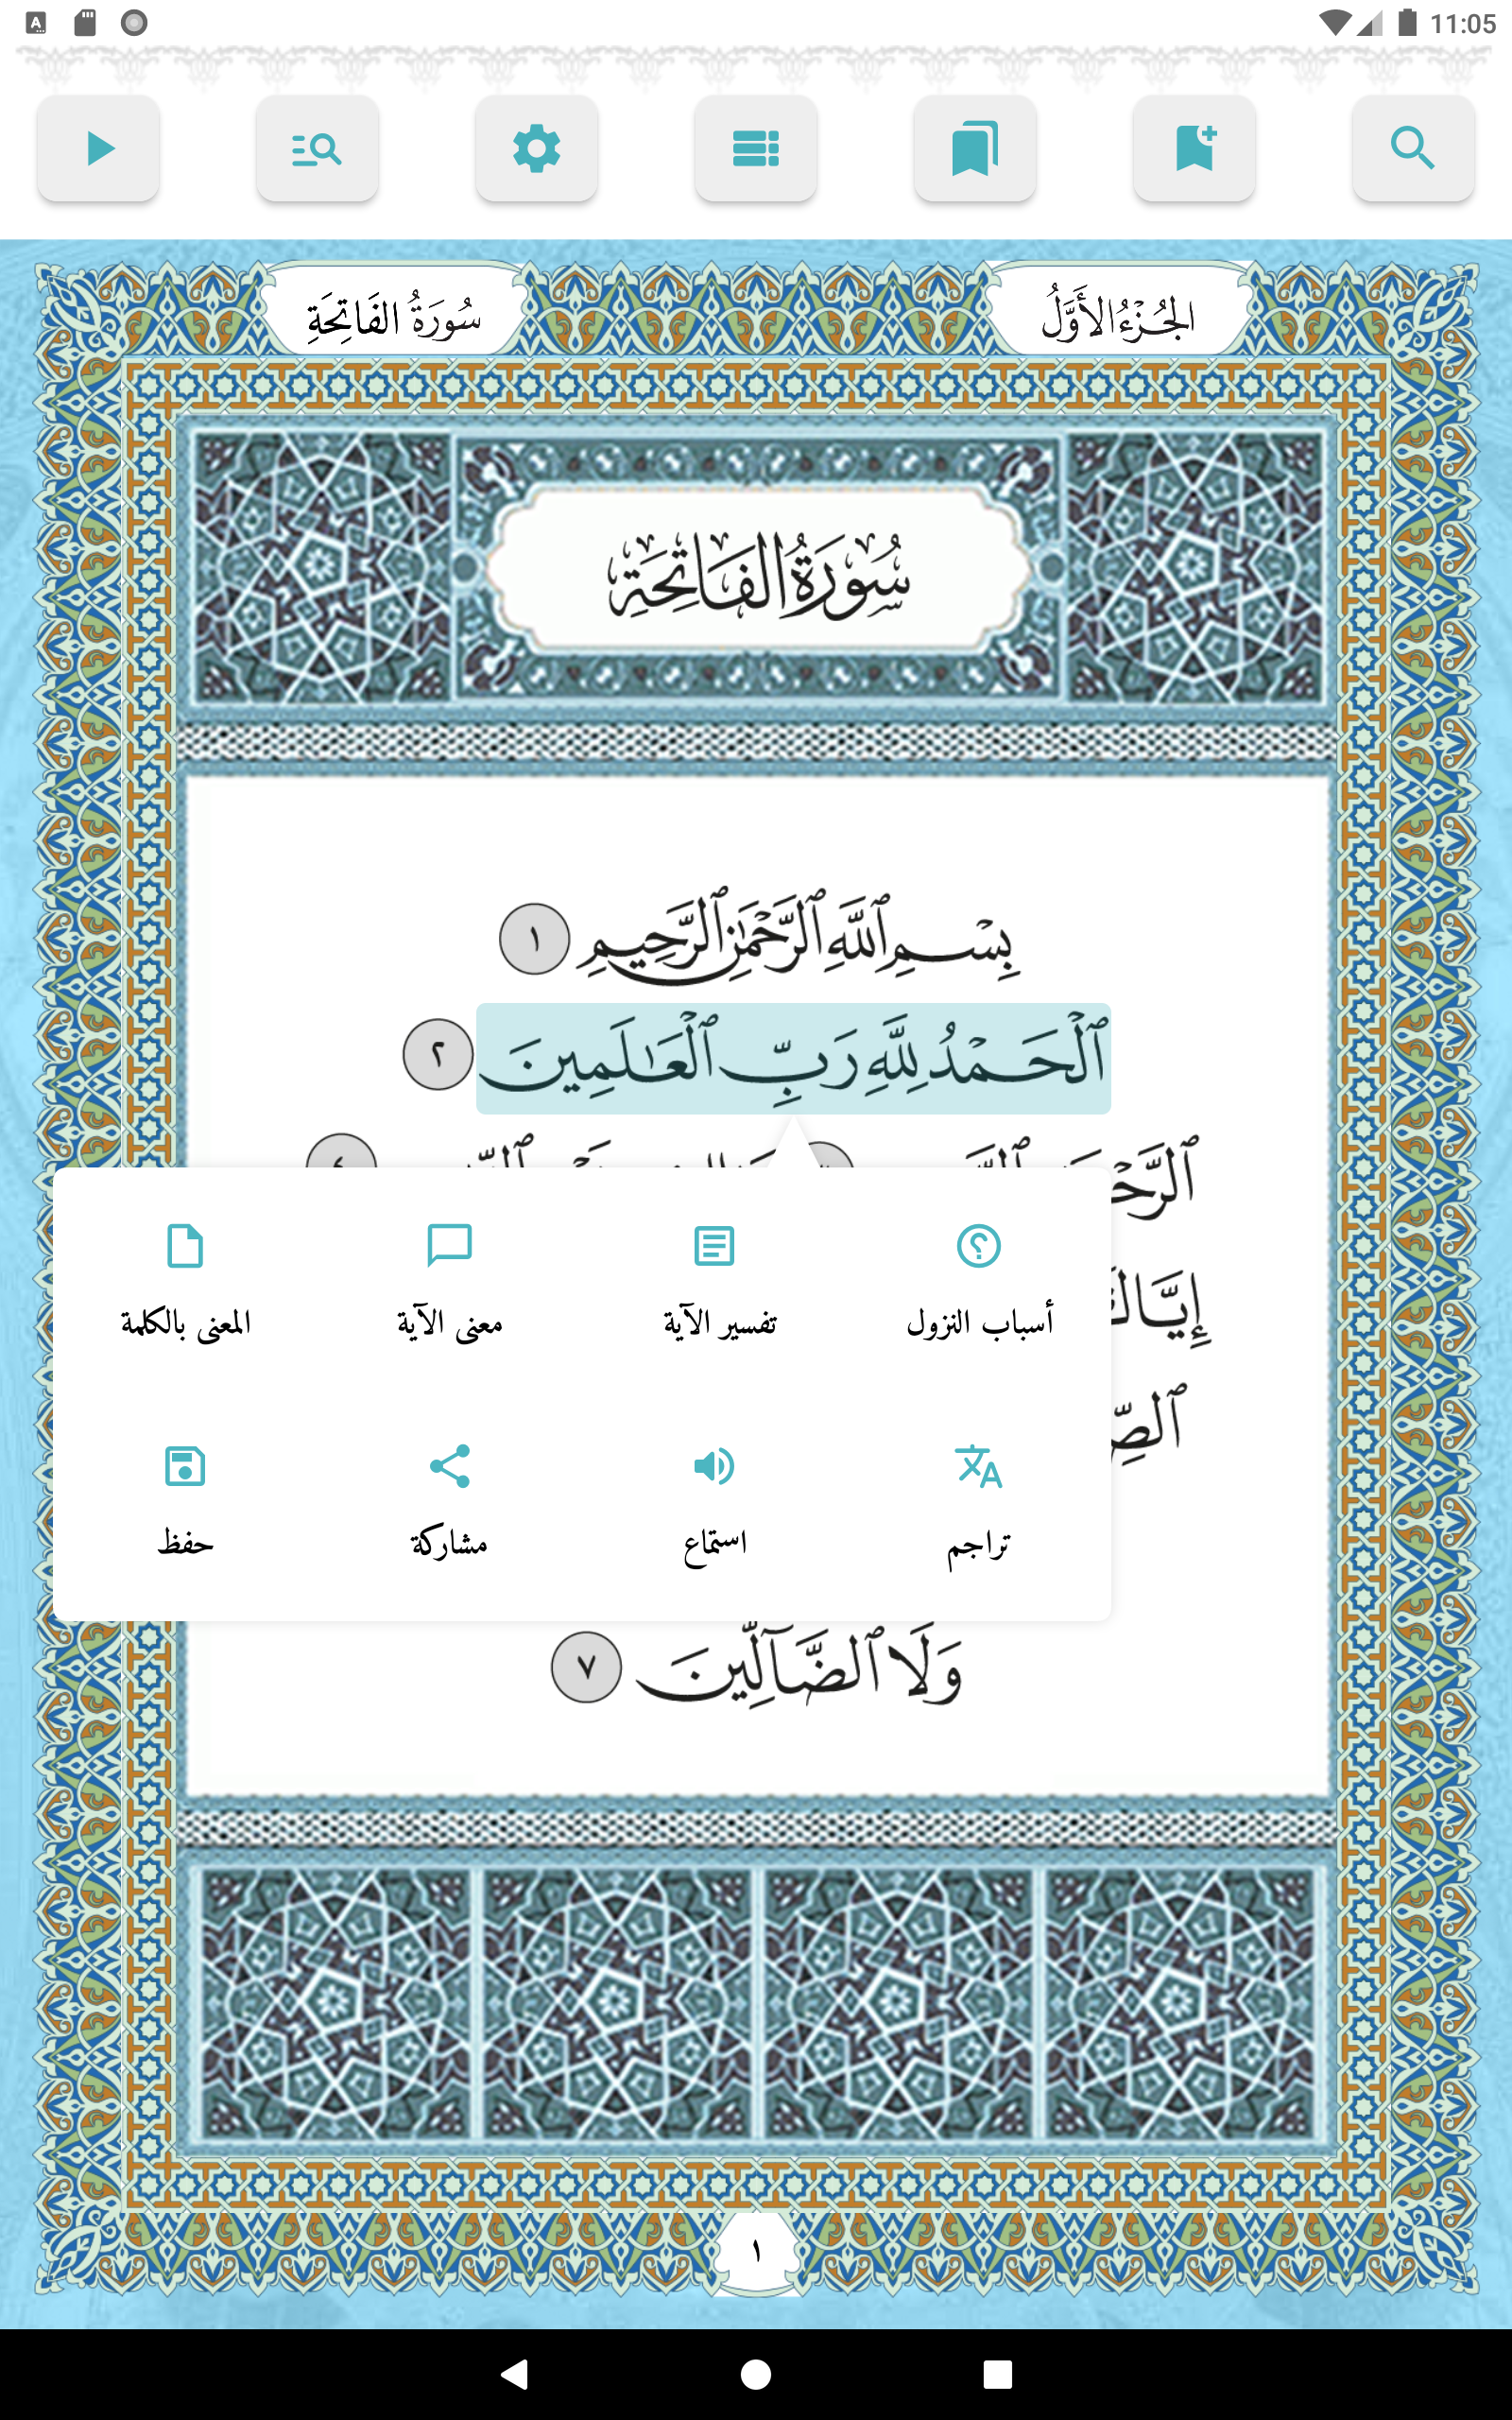 11:05
الجُزْءُ الأَوَّلُ
سُورَةُ الفَاتِحَةِ
سُورَةُ الفَاتِحَةِ
بِسْمِ ٱللَّهِ ٱلرَّحْمَٰنِ ٱلرَّحِيمِ ١
ٱلْحَمْدُ لِلَّهِ رَبِّ ٱلْعَٰلَمِينَ ٢
أسباب النزول
تفسير الآية
معنى الآية
المعنى بالكلمة
تراجم
استماع
مشاركة
حفظ
وَلَا ٱلضَّآلِّينَ ٧
١